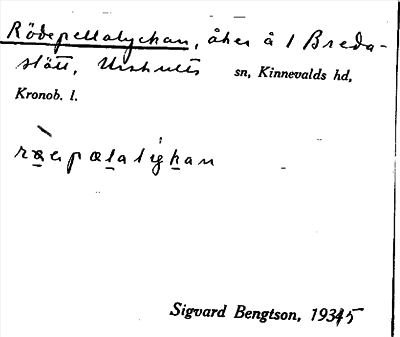 Rödepellalyckan, åker å 1 Breda-
slätt, Urshults sn, Kinnevalds hd,
Kronob. l.
Sigvard Bengtson, 1935